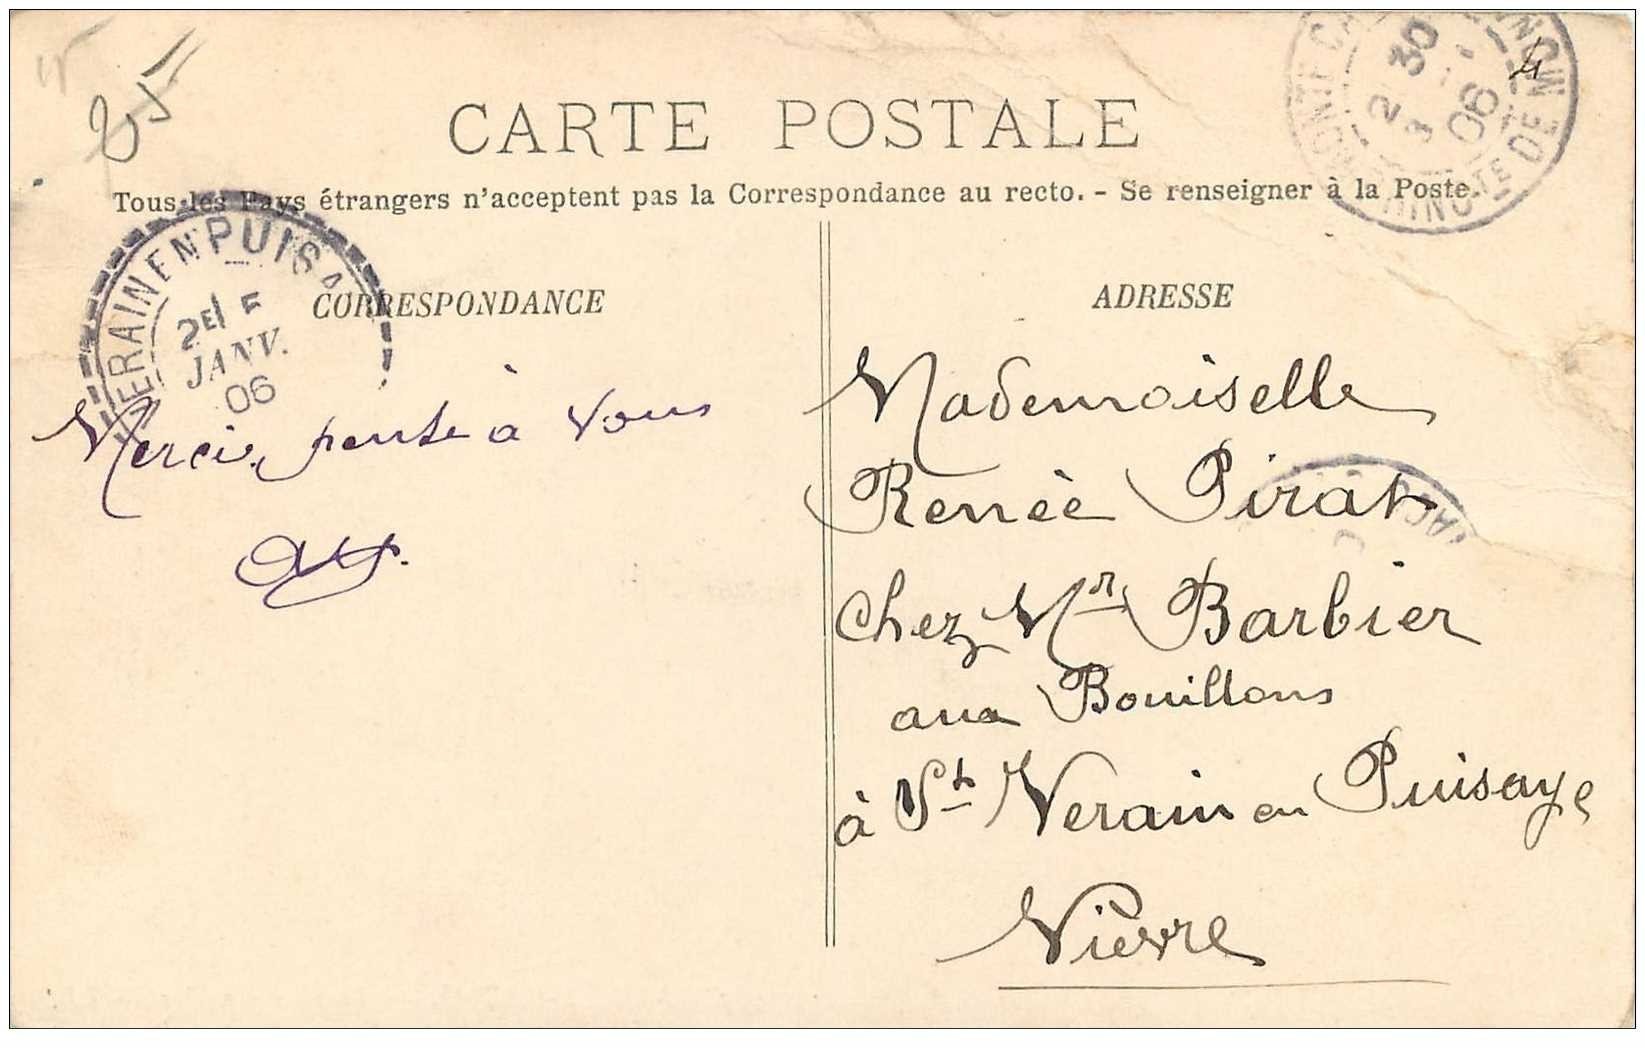 25
4
CARTE POSTALE
Tous les Pays étrangers n'acceptent pas la Correspondance au recto. - Se renseigner à la Poste.
MONTE CA
PTE DE MON
2 30
3
06
ERAIN EN PUISA
2E
JANV.
06
CORRESPONDANCE
Merci, pense à vous
ADRESSE
Mademoiselle
Renée Pirat
chez Mr Barbier
aux Bouillons
à St Verain en Puisaye
Nièvre